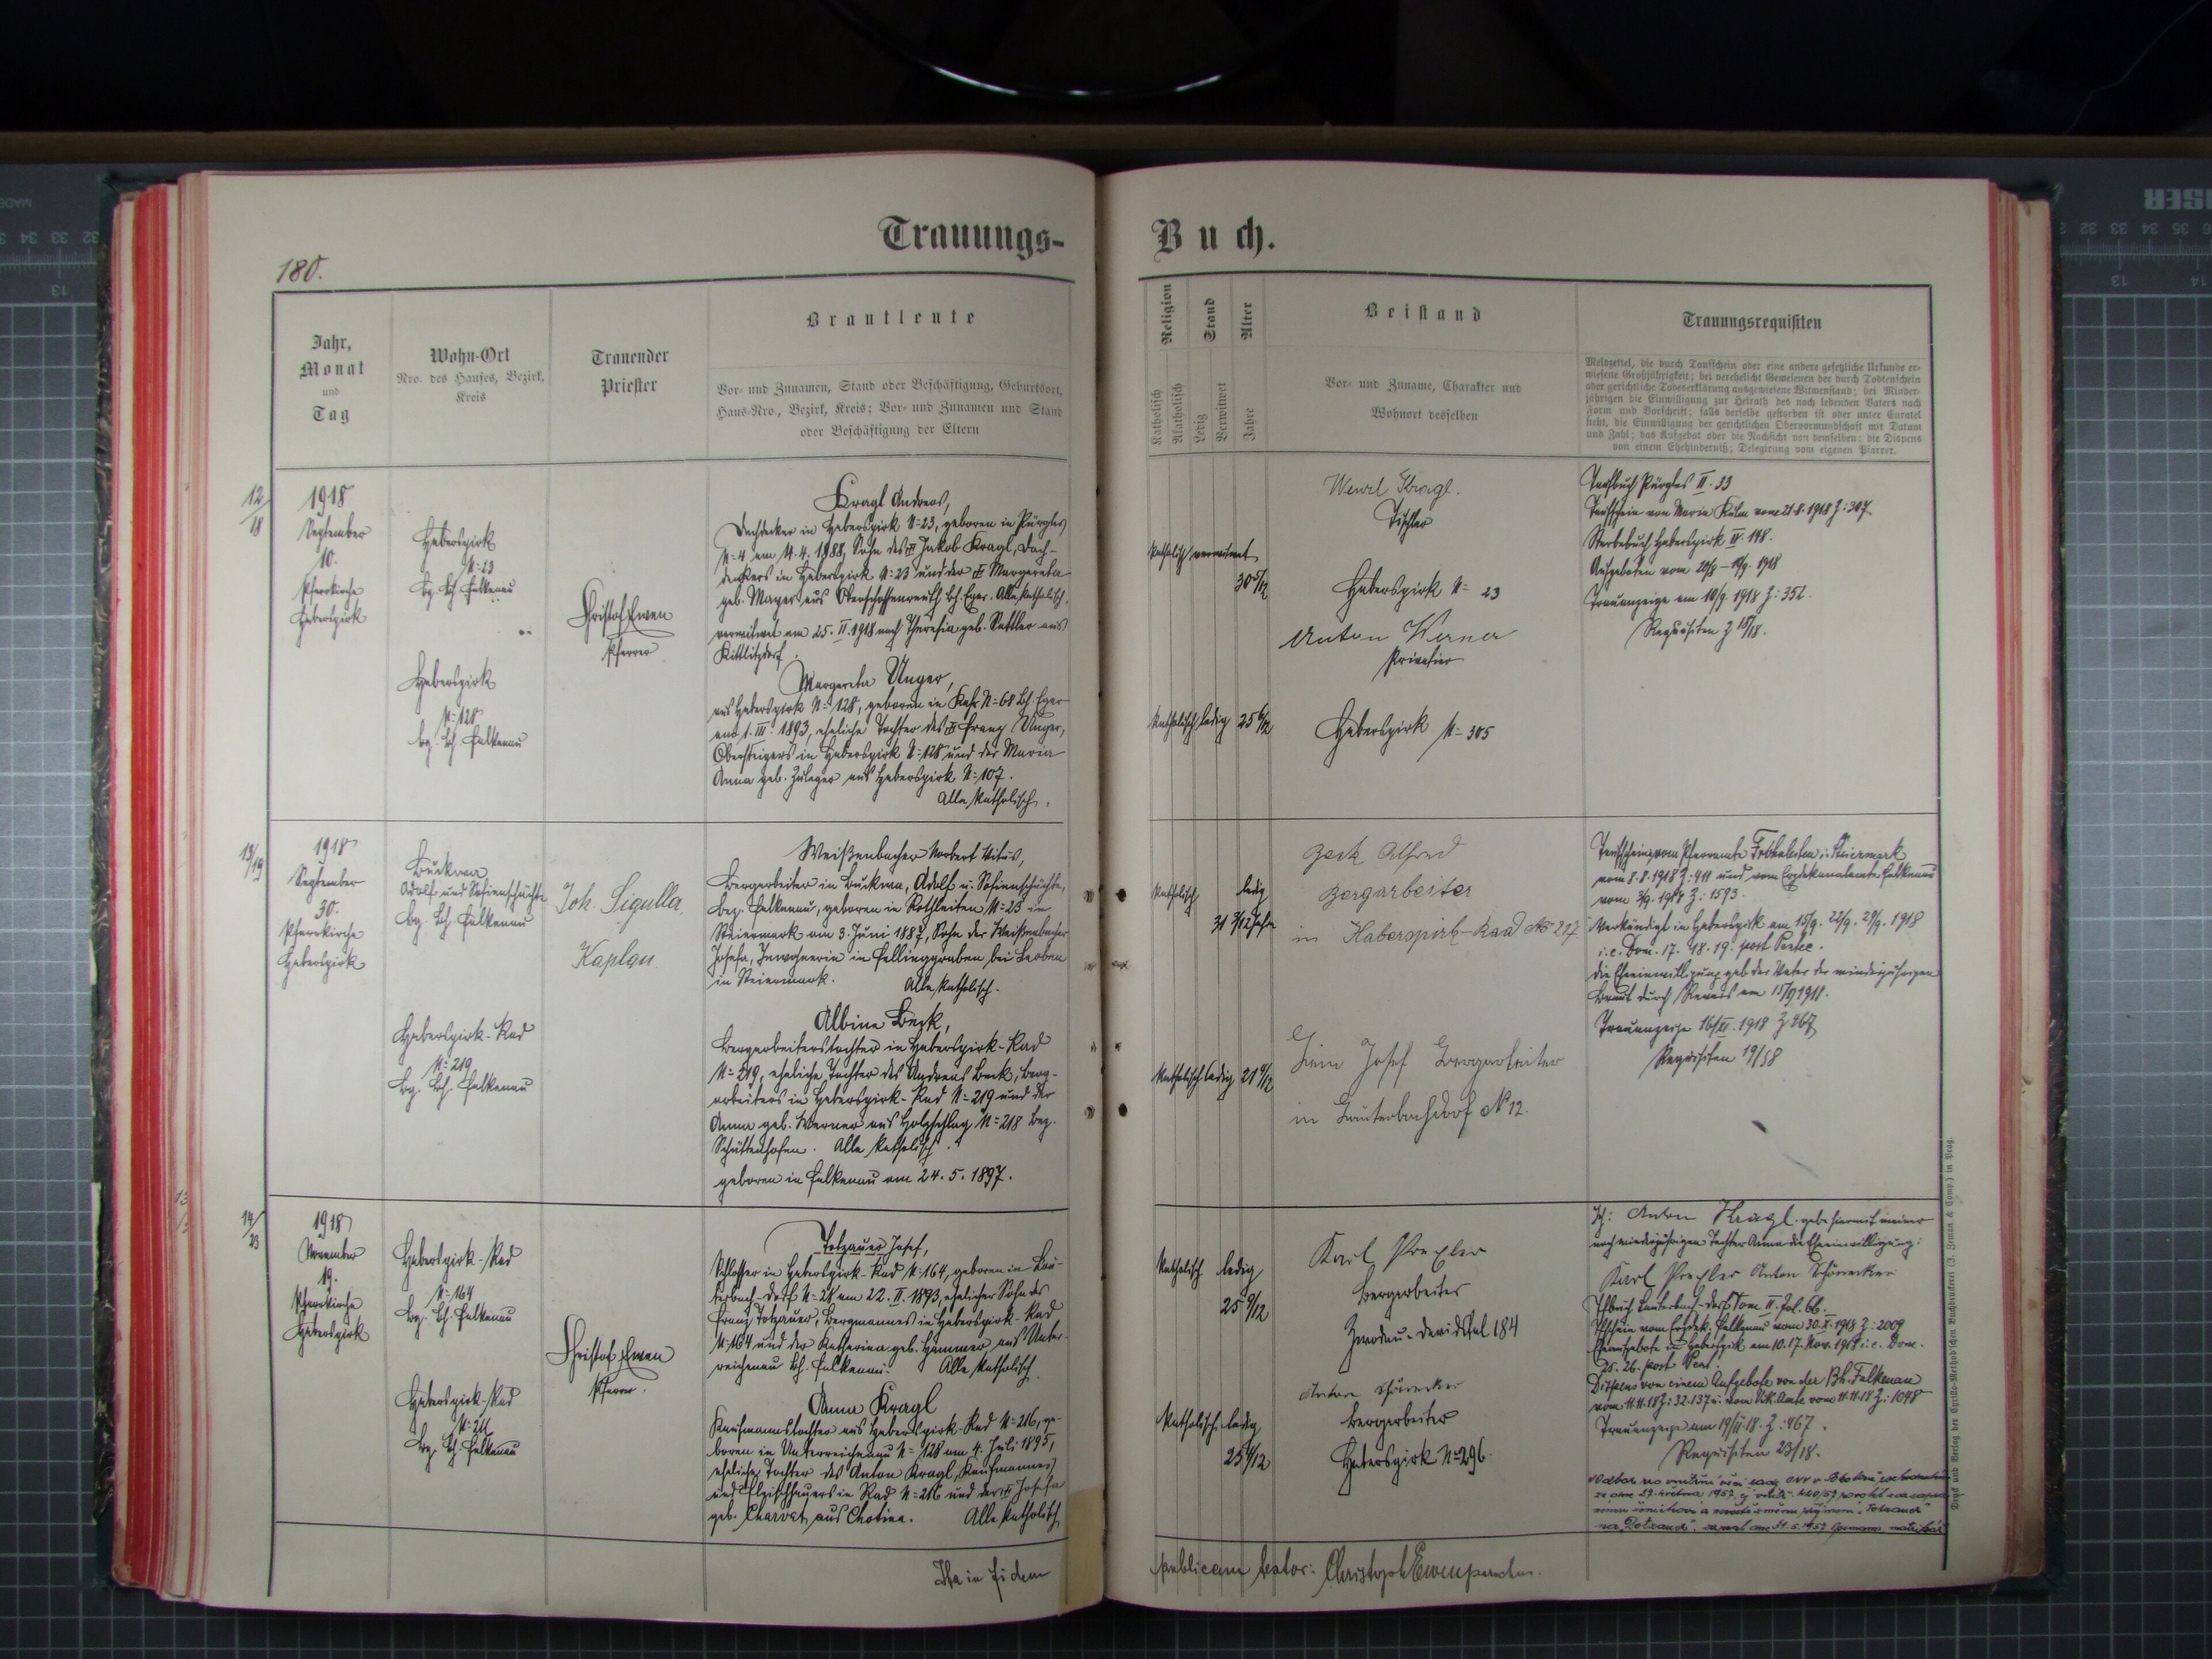 Trauungs-
Buch.
180.
Jahr,
Monat
und
Tag
Wohn-Ort
Nro. des Hauses, Bezirk,
Kreis
Trauender
Priester
Brautleute
Vor- und Zunamen, Stand oder Beschäftigung, Geburtsort,
Haus-Nro., Bezirk, Kreis; Vor- und Zunamen und Stand
oder Beschäftigung der Eltern
Religion
Katholisch
Akatholisch
Stand
Ledig
Verwitwet
Alter
Jahre
Beistand
Vor- und Zuname, Charakter und
Wohnort desselben
Trauungsrequisiten
Meldzettel, die durch Taufschein oder eine andere gesetzliche Urkunde er-
wiesene Großjährigkeit; bei verehelicht Gewesenen der durch Todtenschein
oder gerichtliche Todeserklärung ausgewiesene Witwenstand; bei Minder-
jährigen die Einwilligung zur Heirath des noch lebenden Vaters nach
Form und Vorschrift; falls derselbe gestorben ist oder unter Curatel
steht, die Einwilligung der gerichtlichen Obervormundschaft mit Datum
und Zahl; das Aufgebot oder die Nachsicht von demselben; die Dispens
von einem Ehehinderniß; Delegirung vom eigenen Pfarrer.
12/18
1918
September
10.
Pfarrkirche
Haberspirk
Haberspirk
N=23
Bz. Bh. Falkenau
Haberspirk
N=128
Bz. Bh. Falkenau
Christof Ewen
Pfarrer
Kragl Andreas,
Dachdecker in Haberspirk N=23, geboren in Pürgles
N=4 am 4. 4. 1888, Sohn des Jakob Kragl, Dach-
deckers in Haberspirk N=23 und der Margareta
geb. Mayer aus Oberschossenreuth Bh. Eger. Alle katholisch,
verwitwet am 25. II. 1918 nach Theresia geb. Sattler aus
Kittlitzdorf
Margareta Unger,
aus Haberspirk N=128, geboren in N=68 Bh. Eger
am 1. III. 1893, eheliche Tochter des Franz Unger,
Obersteigers in Haberspirk N=128 und der Maria
Anna geb. Zuleger aus Haberspirk N=107.
Alle katholisch.
katholisch verwitwet
30 5/12
katholisch ledig 25 6/12
Wenzl Kragl.
Tischler
Haberspirk N=23
Anton Werner
Privatier
Haberspirk N=305
Taufbuch Pürgles II. 33
Taufschein von Maria Kulm vom 21. 8. 1918 Z: 307
Sterbebuch Haberspirk IV. 148.
Aufgeboten vom
Trauanzeige am 10/9. 1918 Z: 352.
Requisiten Z 18/18.
13/19
1918
September
30.
Pfarrkirche
Haberspirk
Buckwa
Adolf und Sofienschächte
Bz. Bh. Falkenau
Haberspirk-Rad
N=219
Bz. Bh. Falkenau
Joh. Sigulla,
Kaplan
Weißenbacher Norbert Vitus,
Bergarbeiter in Buckwa, Adolf u. Sofienschächte,
Bez. Falkenau, geboren in Rothleiten N=23 in
Steiermark am 3. Juni 1887, Sohn der Weißenbacher
Josefa, Inwohnerin in bei Leoben
in Steiermark. Alle katholisch.
Albine Beck,
Bergarbeiterstochter in Haberspirk-Rad
N=219, eheliche Tochter des Andreas Beck, Berg-
arbeiters in Haberspirk-Rad N=219 und der
Anna geb. Werner aus Holzschlag N=218 Bez.
Schüttenhofen. Alle katholisch.
geboren in Falkenau am 24. 5. 1897.
katholisch ledig
31 3/12 Jahre
katholisch ledig 21 4/12
Alfred
Bergarbeiter
in Haberspirk-Raad No 217
Josef Bergarbeiter
in Lauterbachdorf No 12.
Taufschein vom Pfarramte in Steiermark
vom 8. 8. 1918 Z: 411 und vom Erzdekanalamte Falkenau
vom Z: 1593.
Verkündigt in Haberspirk am 15/9. 22/9. 29/9. 1918
i. e. Dom. 17. 18. 19. post Pentec.
die Eheeinwilligung gab der Vater der minderjährigen
Braut durch am 15/9 1918.
Trauanzeige 1918 Z 467
Requisiten 19/18
14/23
1918
November
19.
Pfarrkirche
Haberspirk
Haberspirk-Rad
N=164
Bz. Bh. Falkenau
Haberspirk-Rad
N=216
Bz. Bh. Falkenau
Christof Ewen
Pfarrer.
Totzauer Josef,
Schlosser in Haberspirk-Rad N=164, geboren in Lau-
terbach-Dorf N=28 am 22. II. 1893, ehelicher Sohn des
Franz Totzauer, Bergmannes in Haberspirk-Rad
N=164 und der Katharina geb. Hammer aus Unter-
reichenau Bh. Falkenau. Alle katholisch.
Anna Kragl
Kaufmannstochter aus Haberspirk-Rad N=216, ge-
boren in Unterreichenau N=128 am 4. Juli 1895,
eheliche Tochter des Anton Kragl, Kaufmannes
und Fleischhauers in Rad N=216 und der Josefa
geb. Charvat aus Chotina. Alle katholisch
katholisch ledig
25 9/12
katholisch ledig
23 4/12
Karl Prexler
Bergarbeiter
Zwodau-Davidsthal 184
Anton Schönecker
Bergarbeiter
Haberspirk N=296.
Ich: Anton Kragl gebe hiermit meiner
noch minderjährigen Tochter Anna die Eheeinwilligung:
Karl Prexler Anton Schönecker
Lauterbach-Dorf Tom II. Fol. 66.
vom Erzdek. Falkenau vom 30. X. 1918 Z: 2009
Eheaufgebote in Haberspirk am 10. 17. Nov. 1918 i. e. Dom.
25. 26. post Pent.
Dispens von einem Aufgebote von der Bh. Falkenau
vom 11. 11. 18 Z: 32.137 u. vom Vik. Amte vom 11. 11. 18 Z: 1098
Trauanzeige am 19/II. 18. Z: 467.
Requisiten 23/18.
Odbor pro vnitřní věci rady ONV v Sokolově
ze dne 27. května 1957
Totzauer
na "Dotzauer". zapsal dne 31. 5. 1957 matrikář
Ita in fidem
publicam testor: Christoph Ewen parochus.
Druck und Verlag der Cyrillo-Method'schen Buchdruckerei (J. Zeman & Comp.) in Prag.